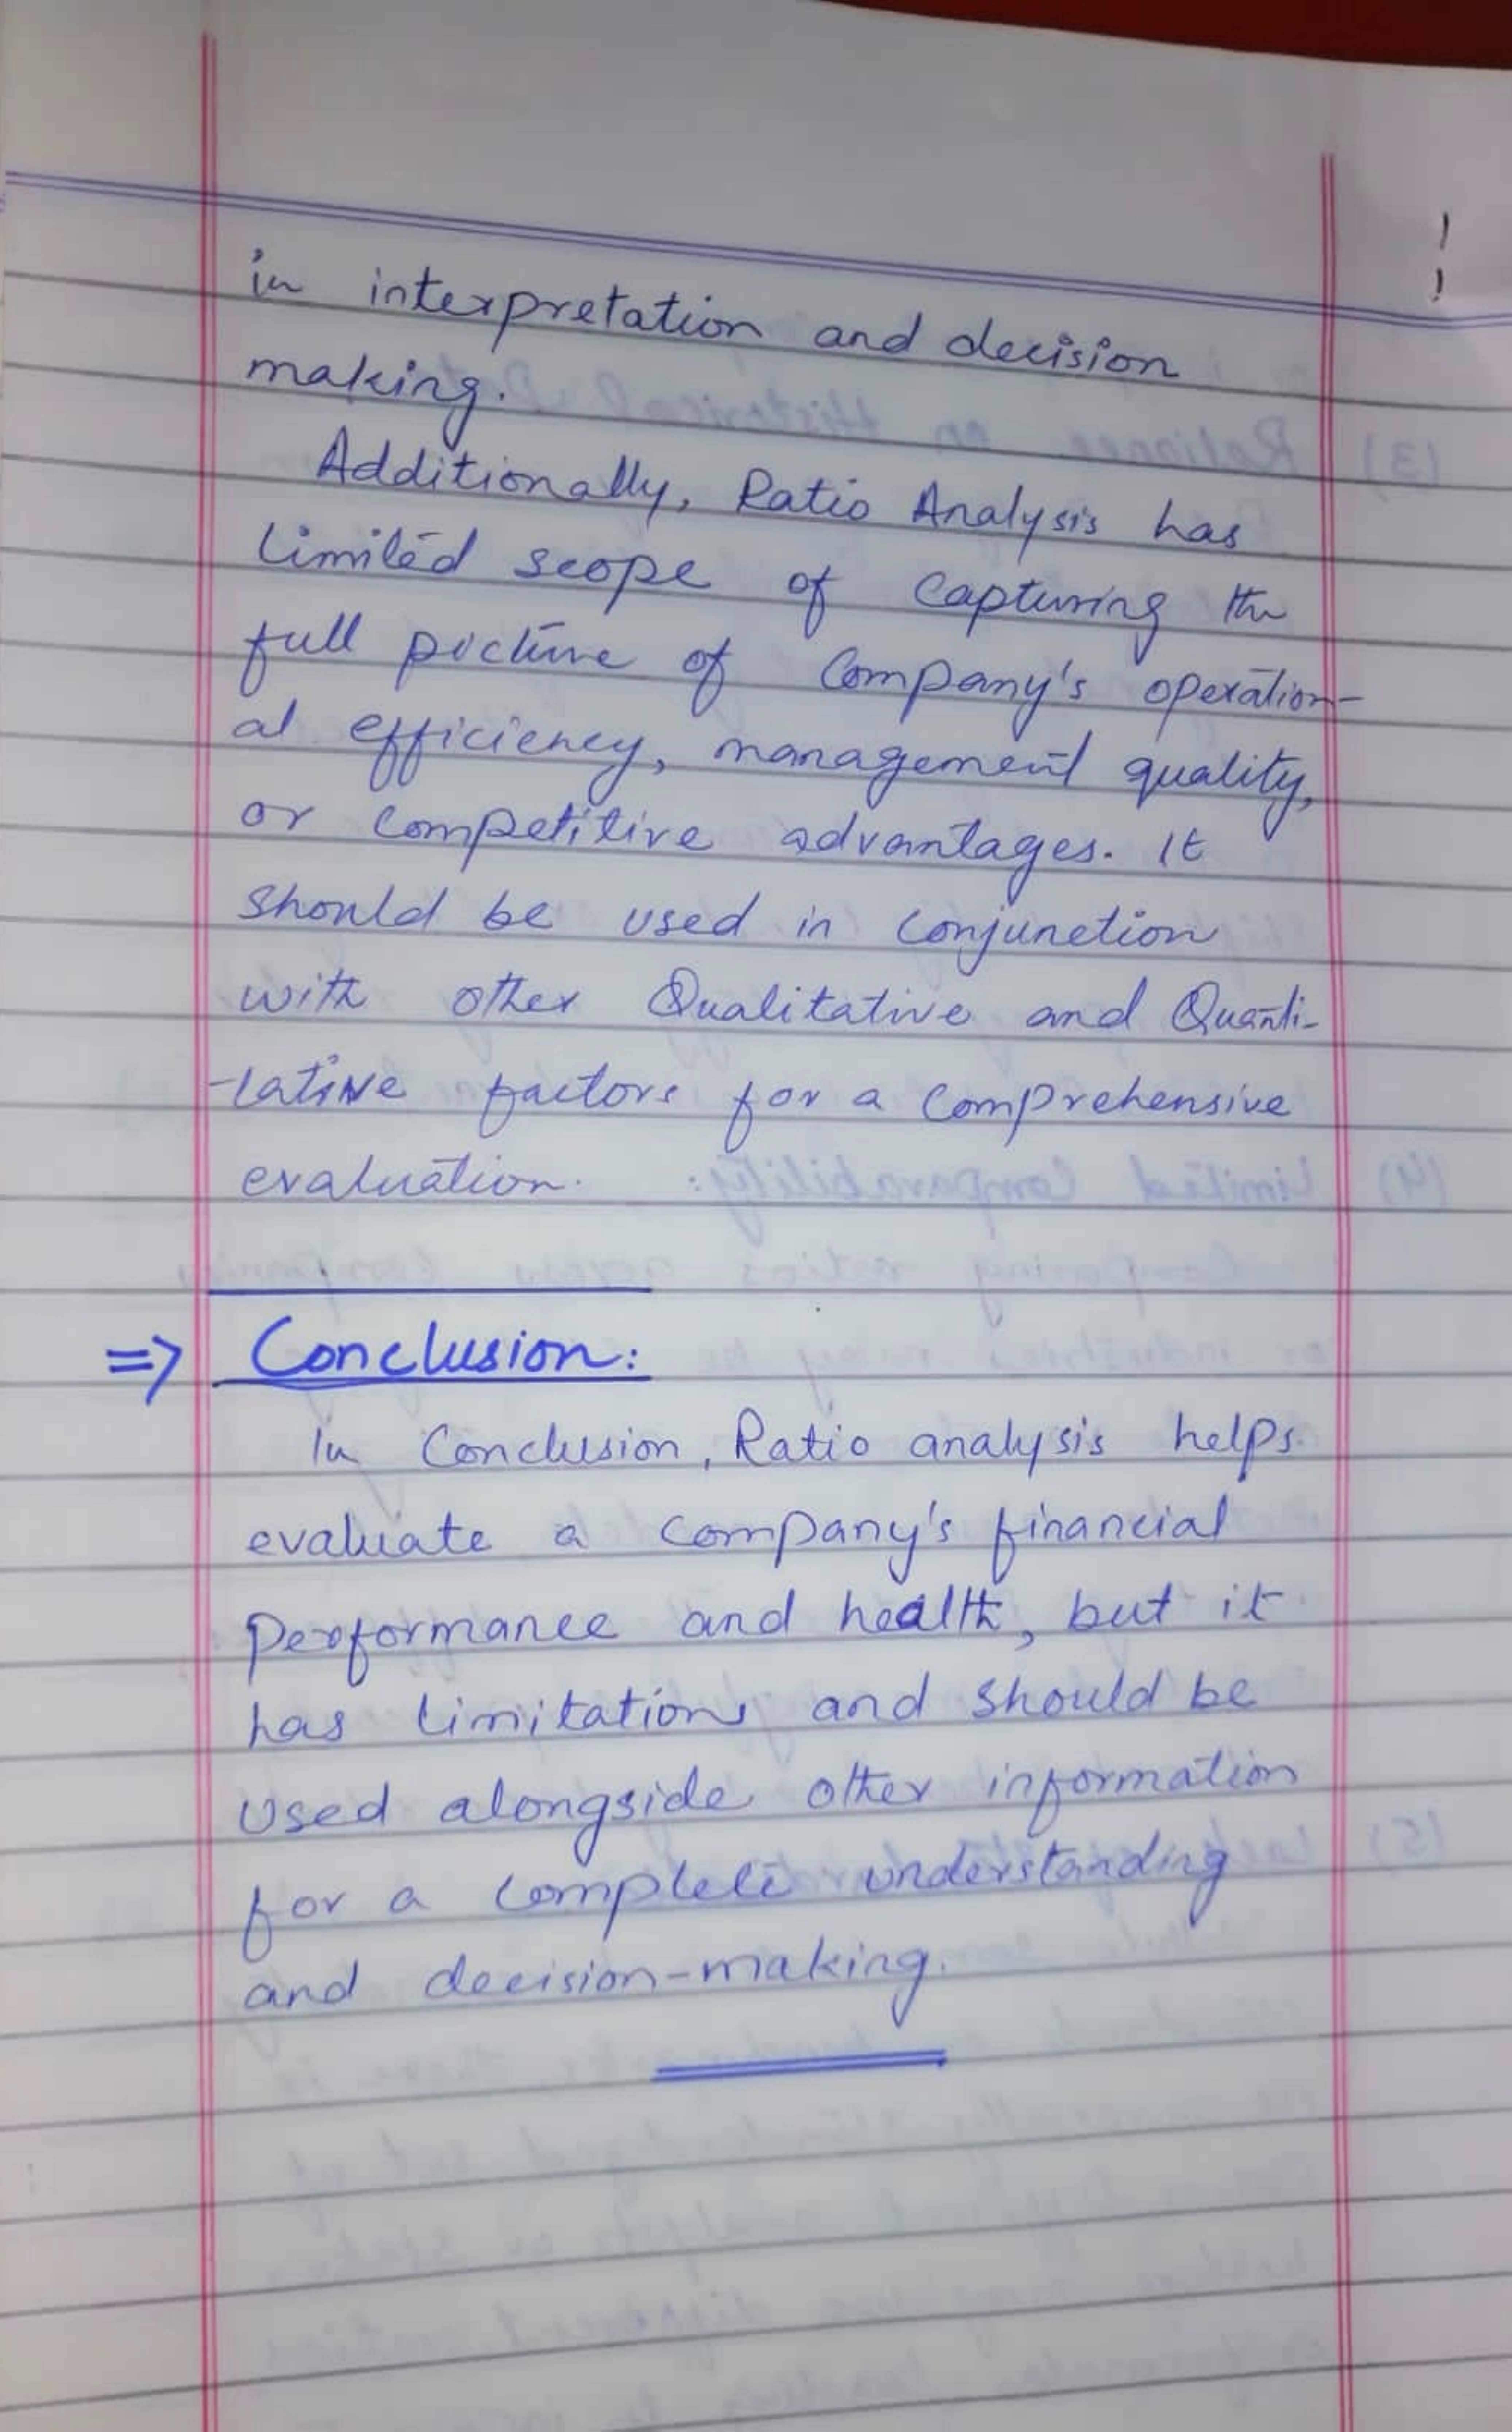 in interpretation and decision
making.
Additionally, Ratio Analysis has
Limited scope of Capturing the
full picture of Company's operation-
al efficiency, management quality,
or Competitive advantages. It
should be used in conjunction
with other Qualitative and Quanti-
-tative factors for a Comprehensive
evaluation.
=> Conclusion:
In Conclusion, Ratio analysis helps
evaluate a Company's financial
Performance and health, but it
has Limitations and should be
used alongside other information
for a Complete understanding
and decision-making.